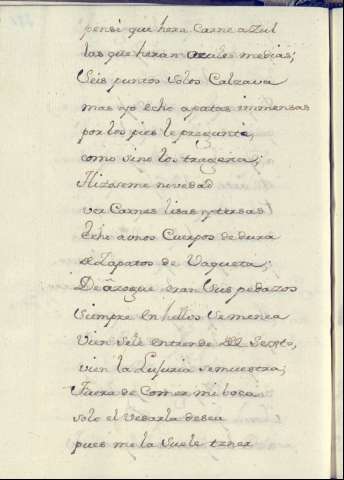 pensé que hera Carne azul
las que heran azules medias;
Seis puntos solos Calzava
mas yo echo a patas immensas
por los pies le pregunte,
como sino los tragera;
Hizoseme novedad
ver Carnes lisas y tersas
Echo a unos Cuerpos de bura
de Zapatos de Vaqueta;
De azogue eran sus pedazos
siempre en hellos se menea
vien se le entiende del Sexto,
vien la Lujuria se muestra;
Fuera de Comer mi boca
solo el vesarla desea
pues me la suele tener